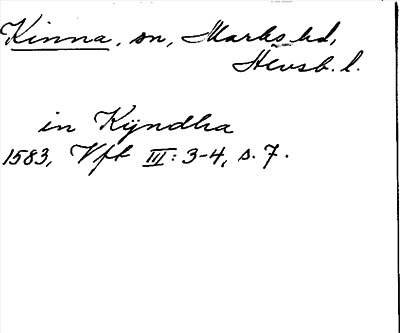 Kinna, sn, Marks hd,
Älvsb. l.
in Kÿndha
1583, Vft III: 3-4, s. 7.